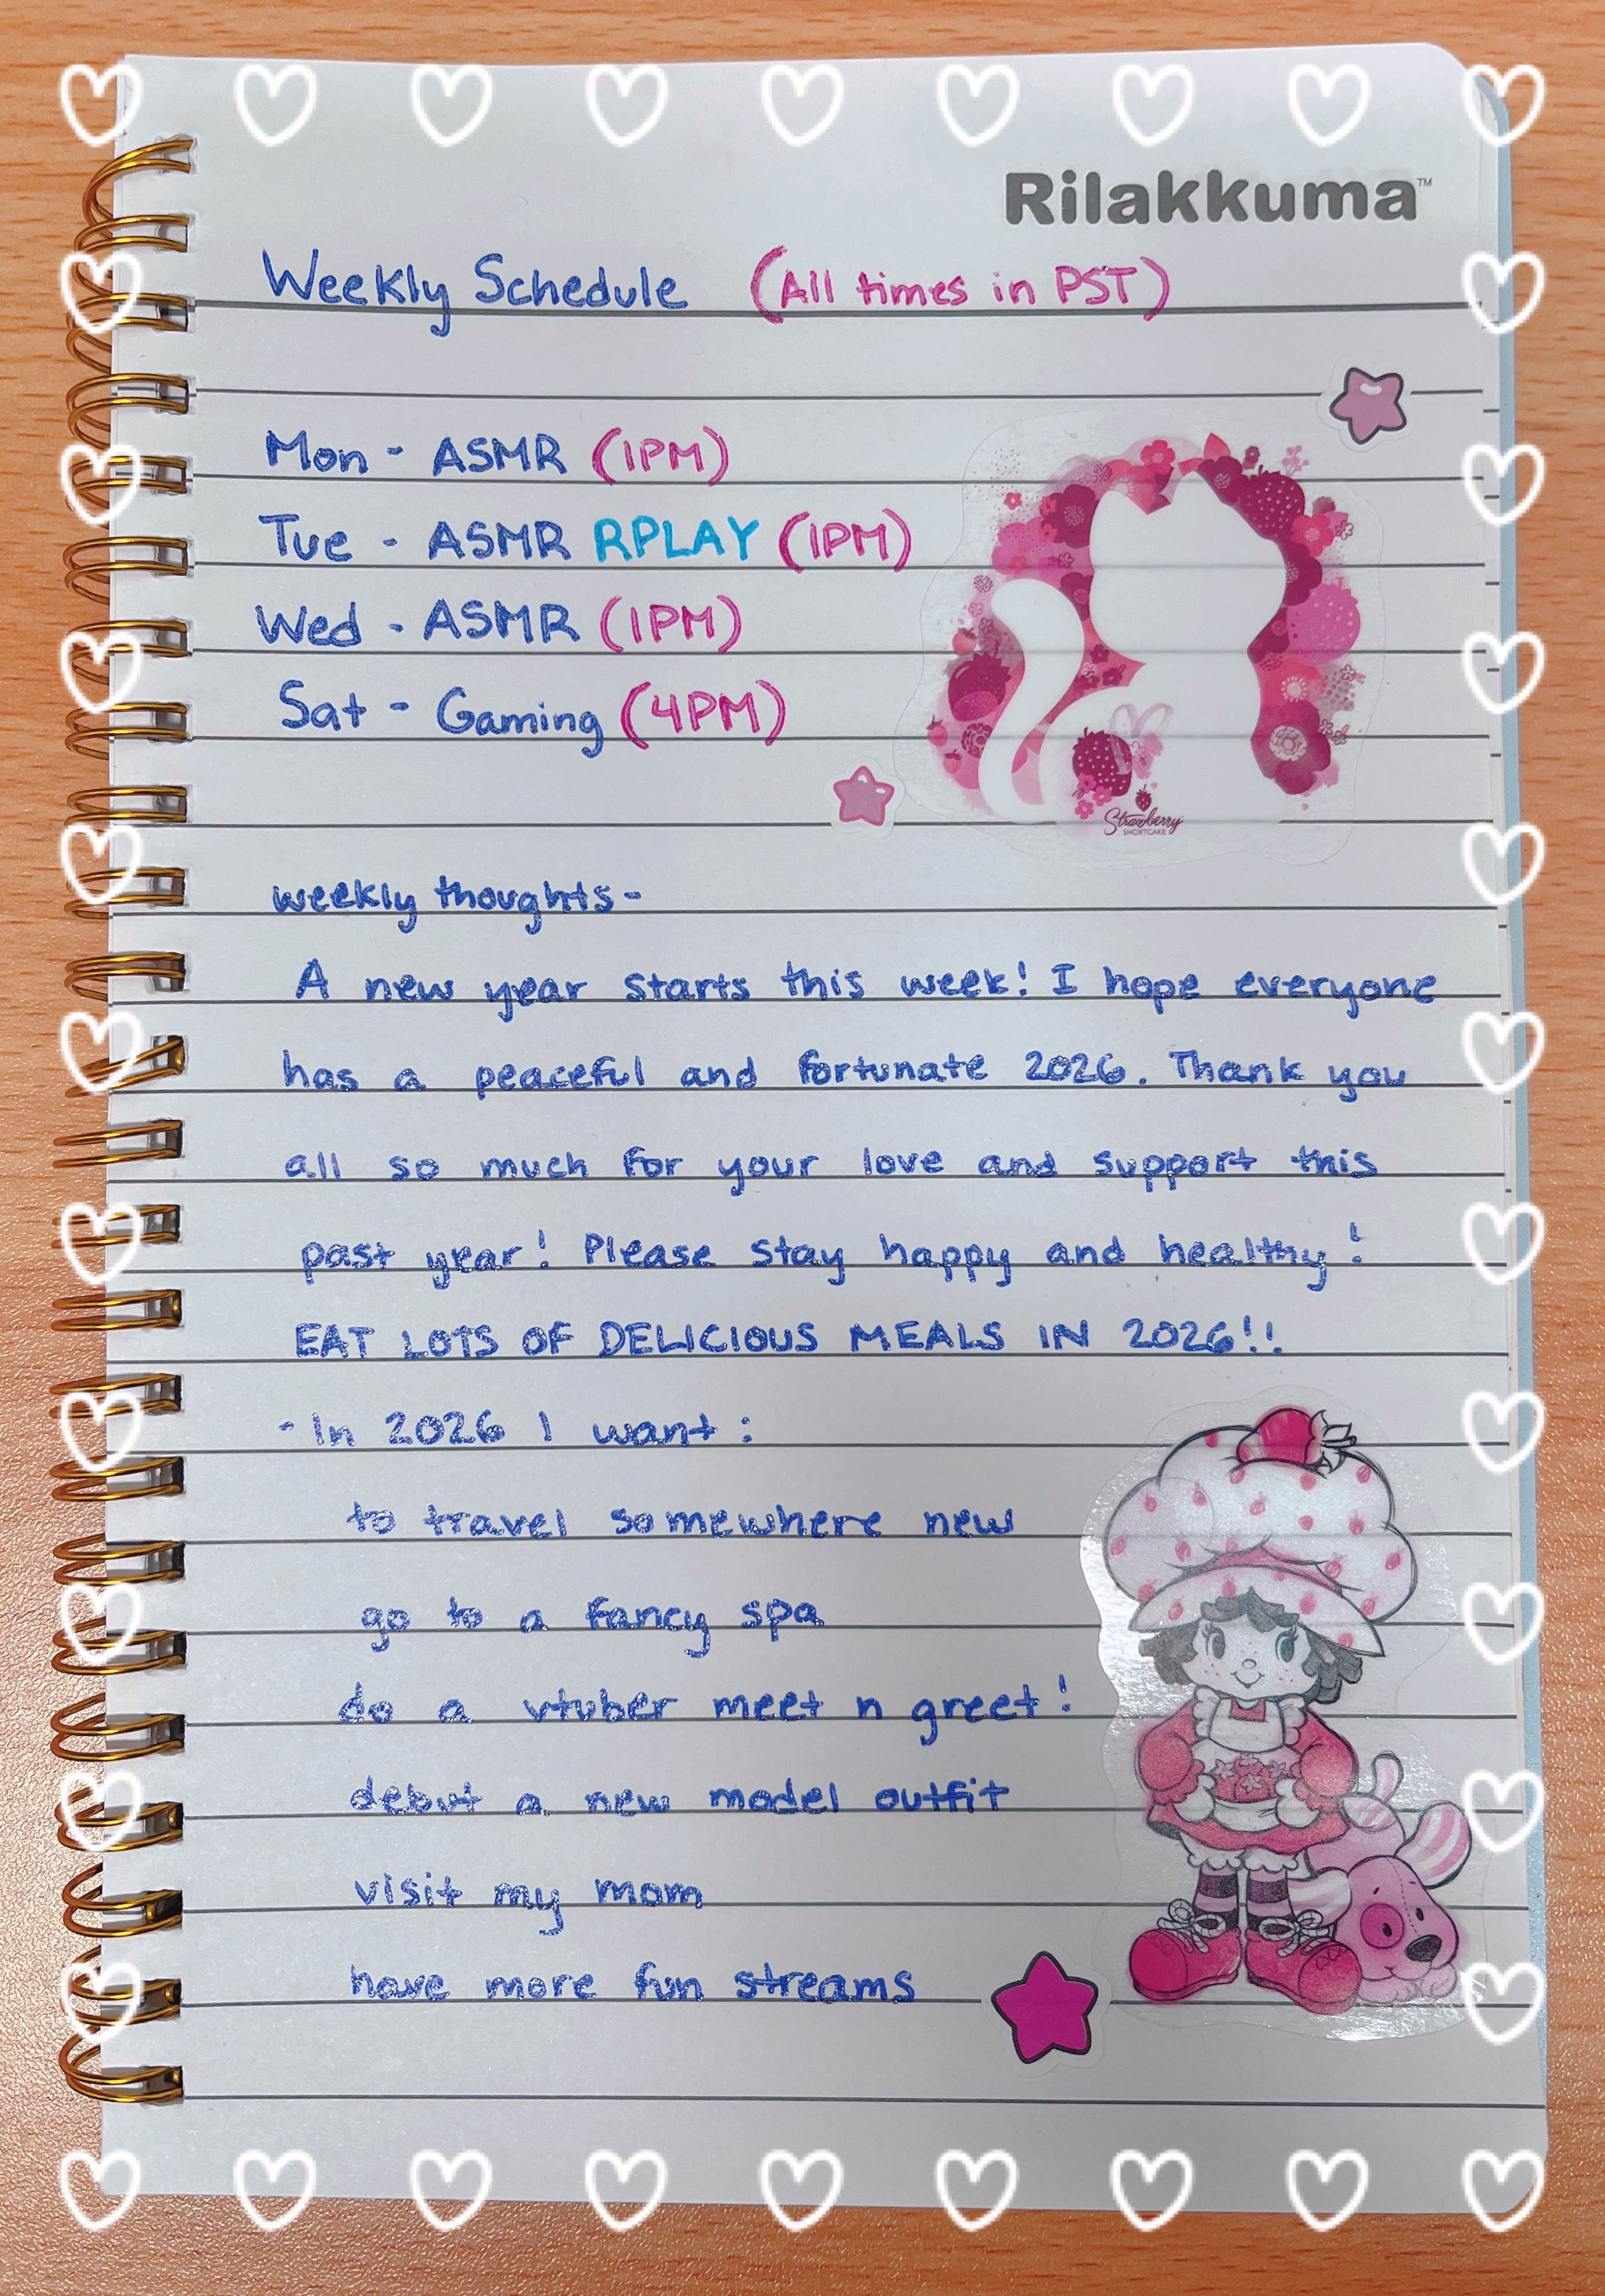 Rilakkuma™
Weekly Schedule (All times in PST)
Mon - ASMR (1PM)
Tue - ASMR RPLAY (1PM)
Wed - ASMR (1PM)
Sat - Gaming (4PM)
Strawberry
SHORTCAKE
weekly thoughts-
A new year starts this week! I hope everyone
has a peaceful and fortunate 2026. Thank you
all so much for your love and support this
past year! Please stay happy and healthy!
EAT LOTS OF DELICIOUS MEALS IN 2026!!
- In 2026 I want:
to travel somewhere new
go to a fancy spa
do a vtuber meet n greet!
debut a new model outfit
visit my mom
have more fun streams